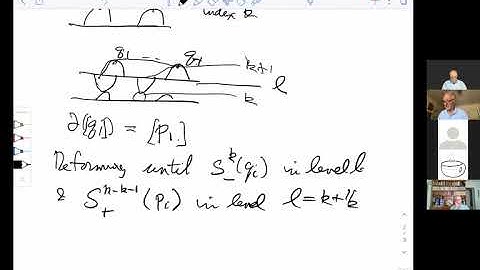 index k
q₁ q₁ k+1
l
k
∂([q₁]) = [p₁]
Deforming until S₋ᵏ(qᵢ) in level l
& S₊ⁿ⁻ᵏ⁻¹(pᵢ) in level l = k+½